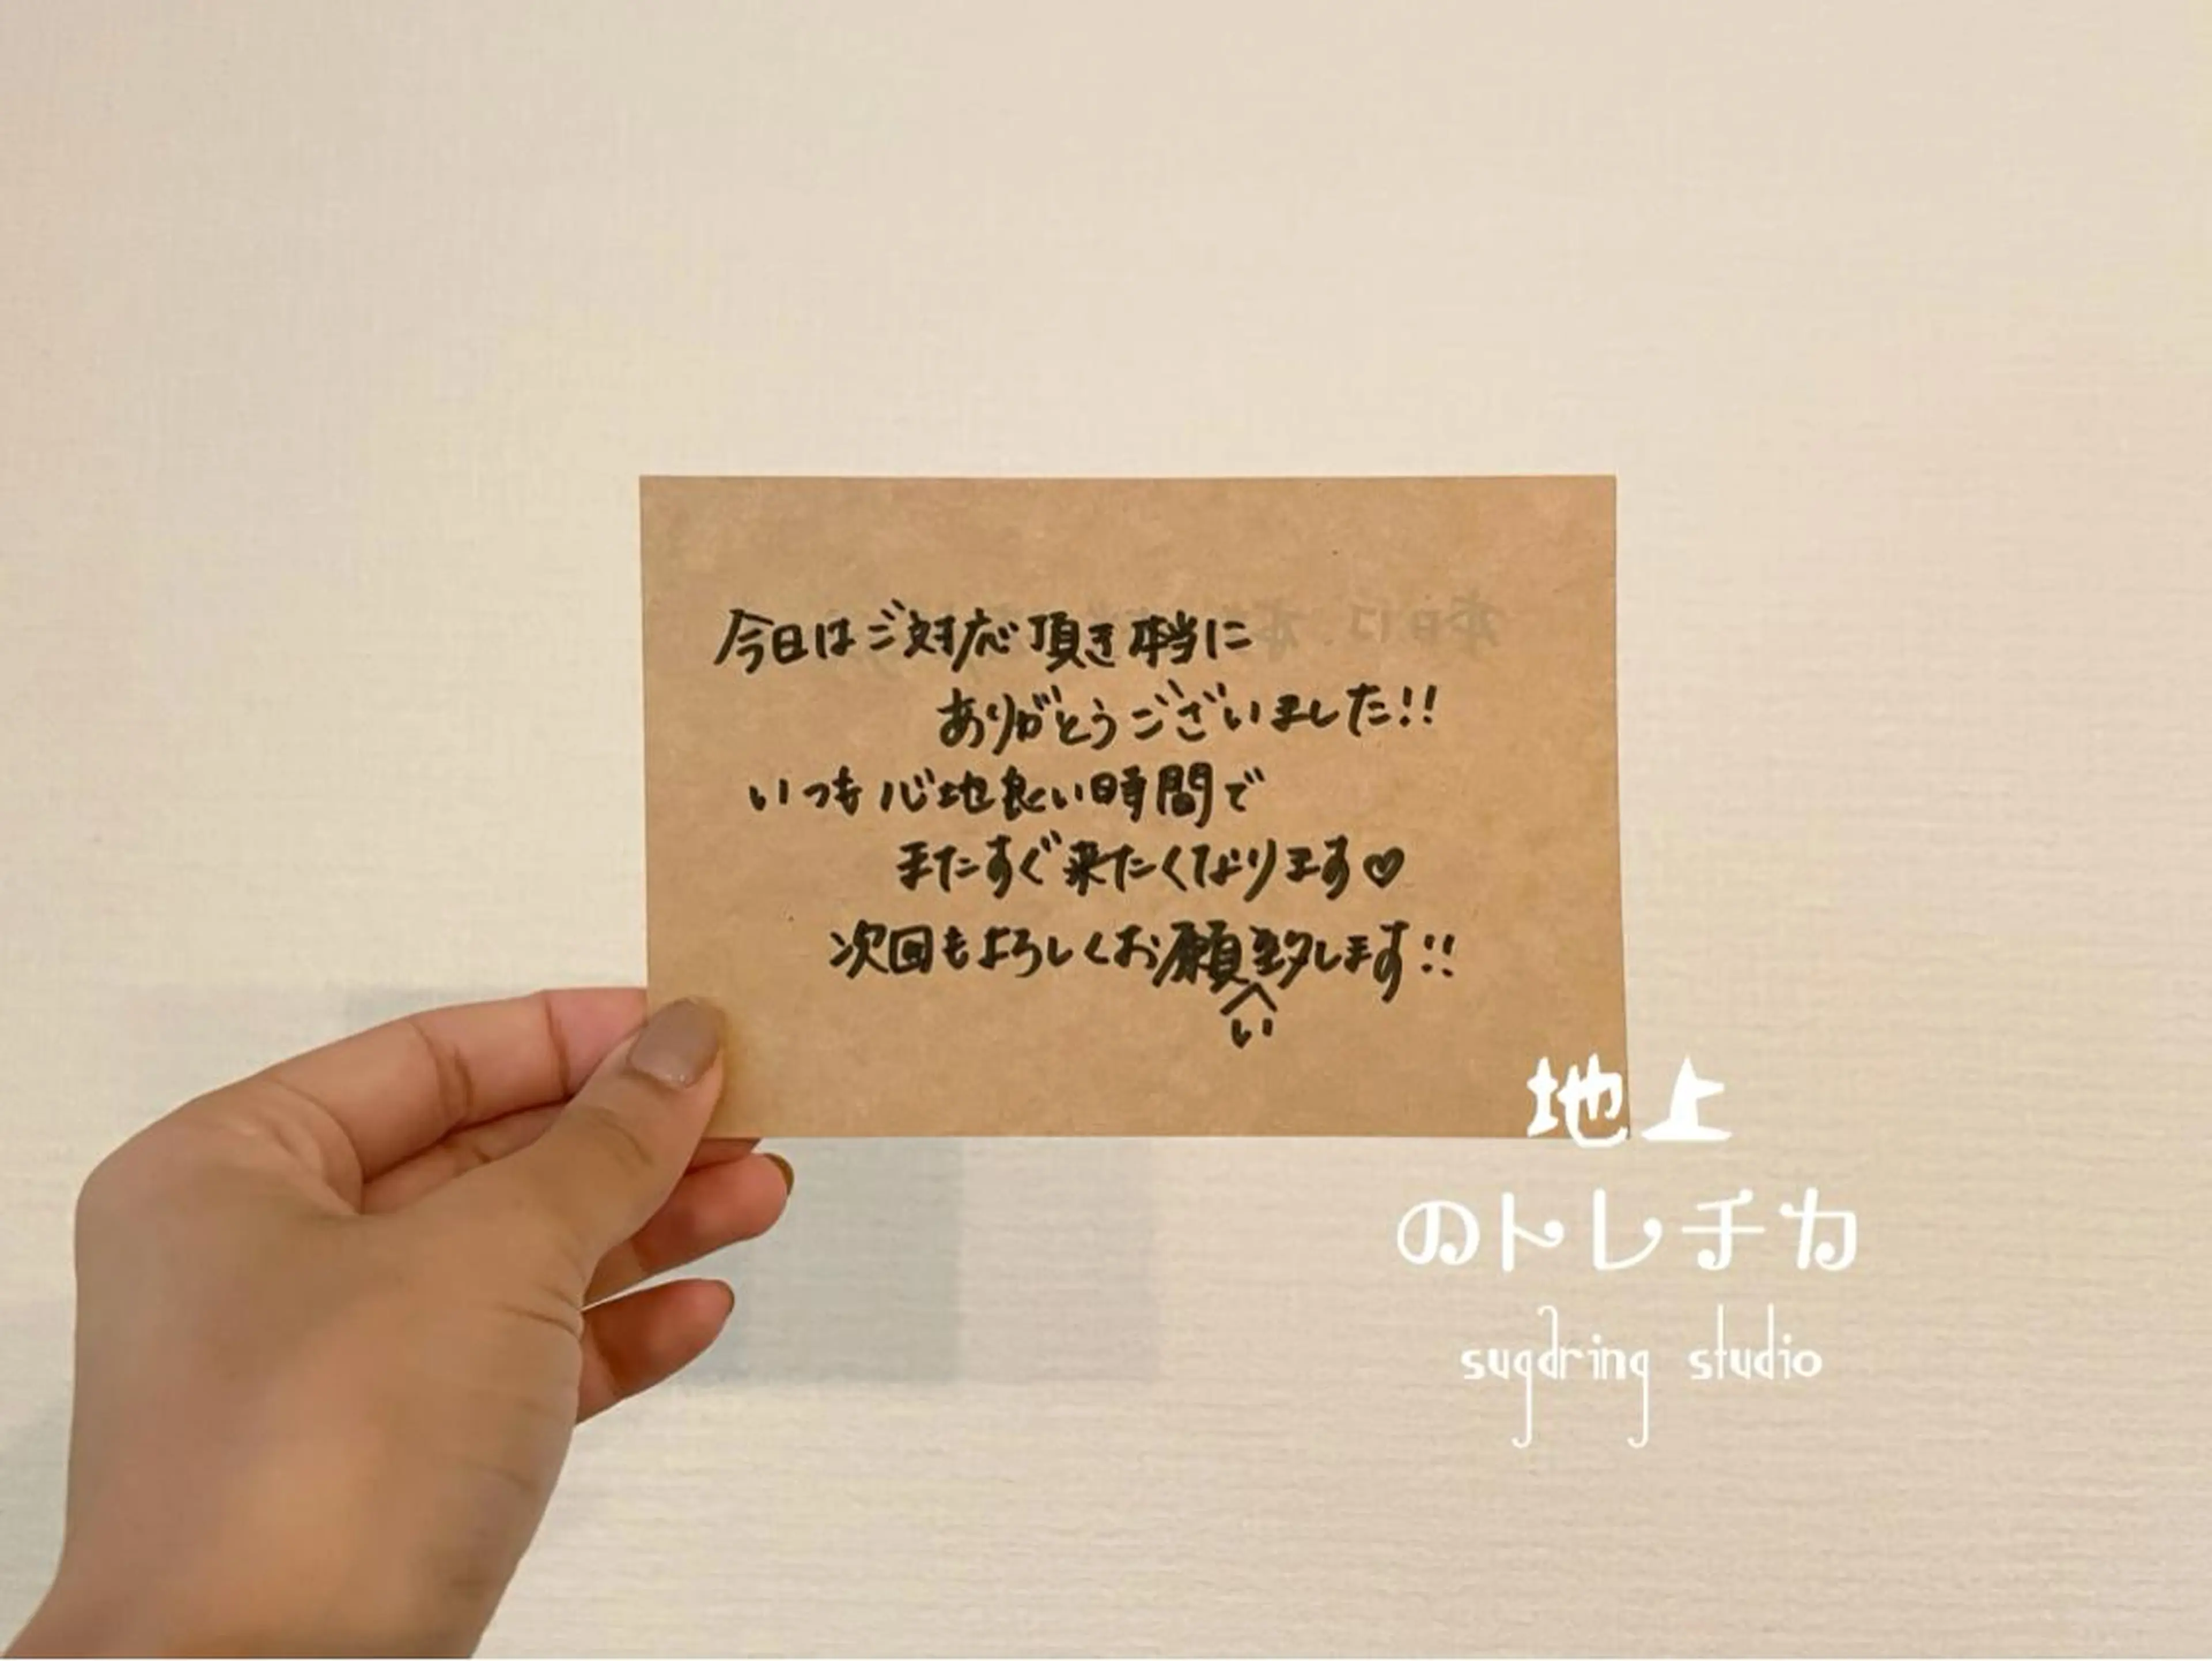 今日はご対応頂き本当に
ありがとうございました!!
いつも心地良い時間で
またすぐ来たくなります♡
次回もよろしくお願い致します!!
地上
のトレチカ
sugdring studio